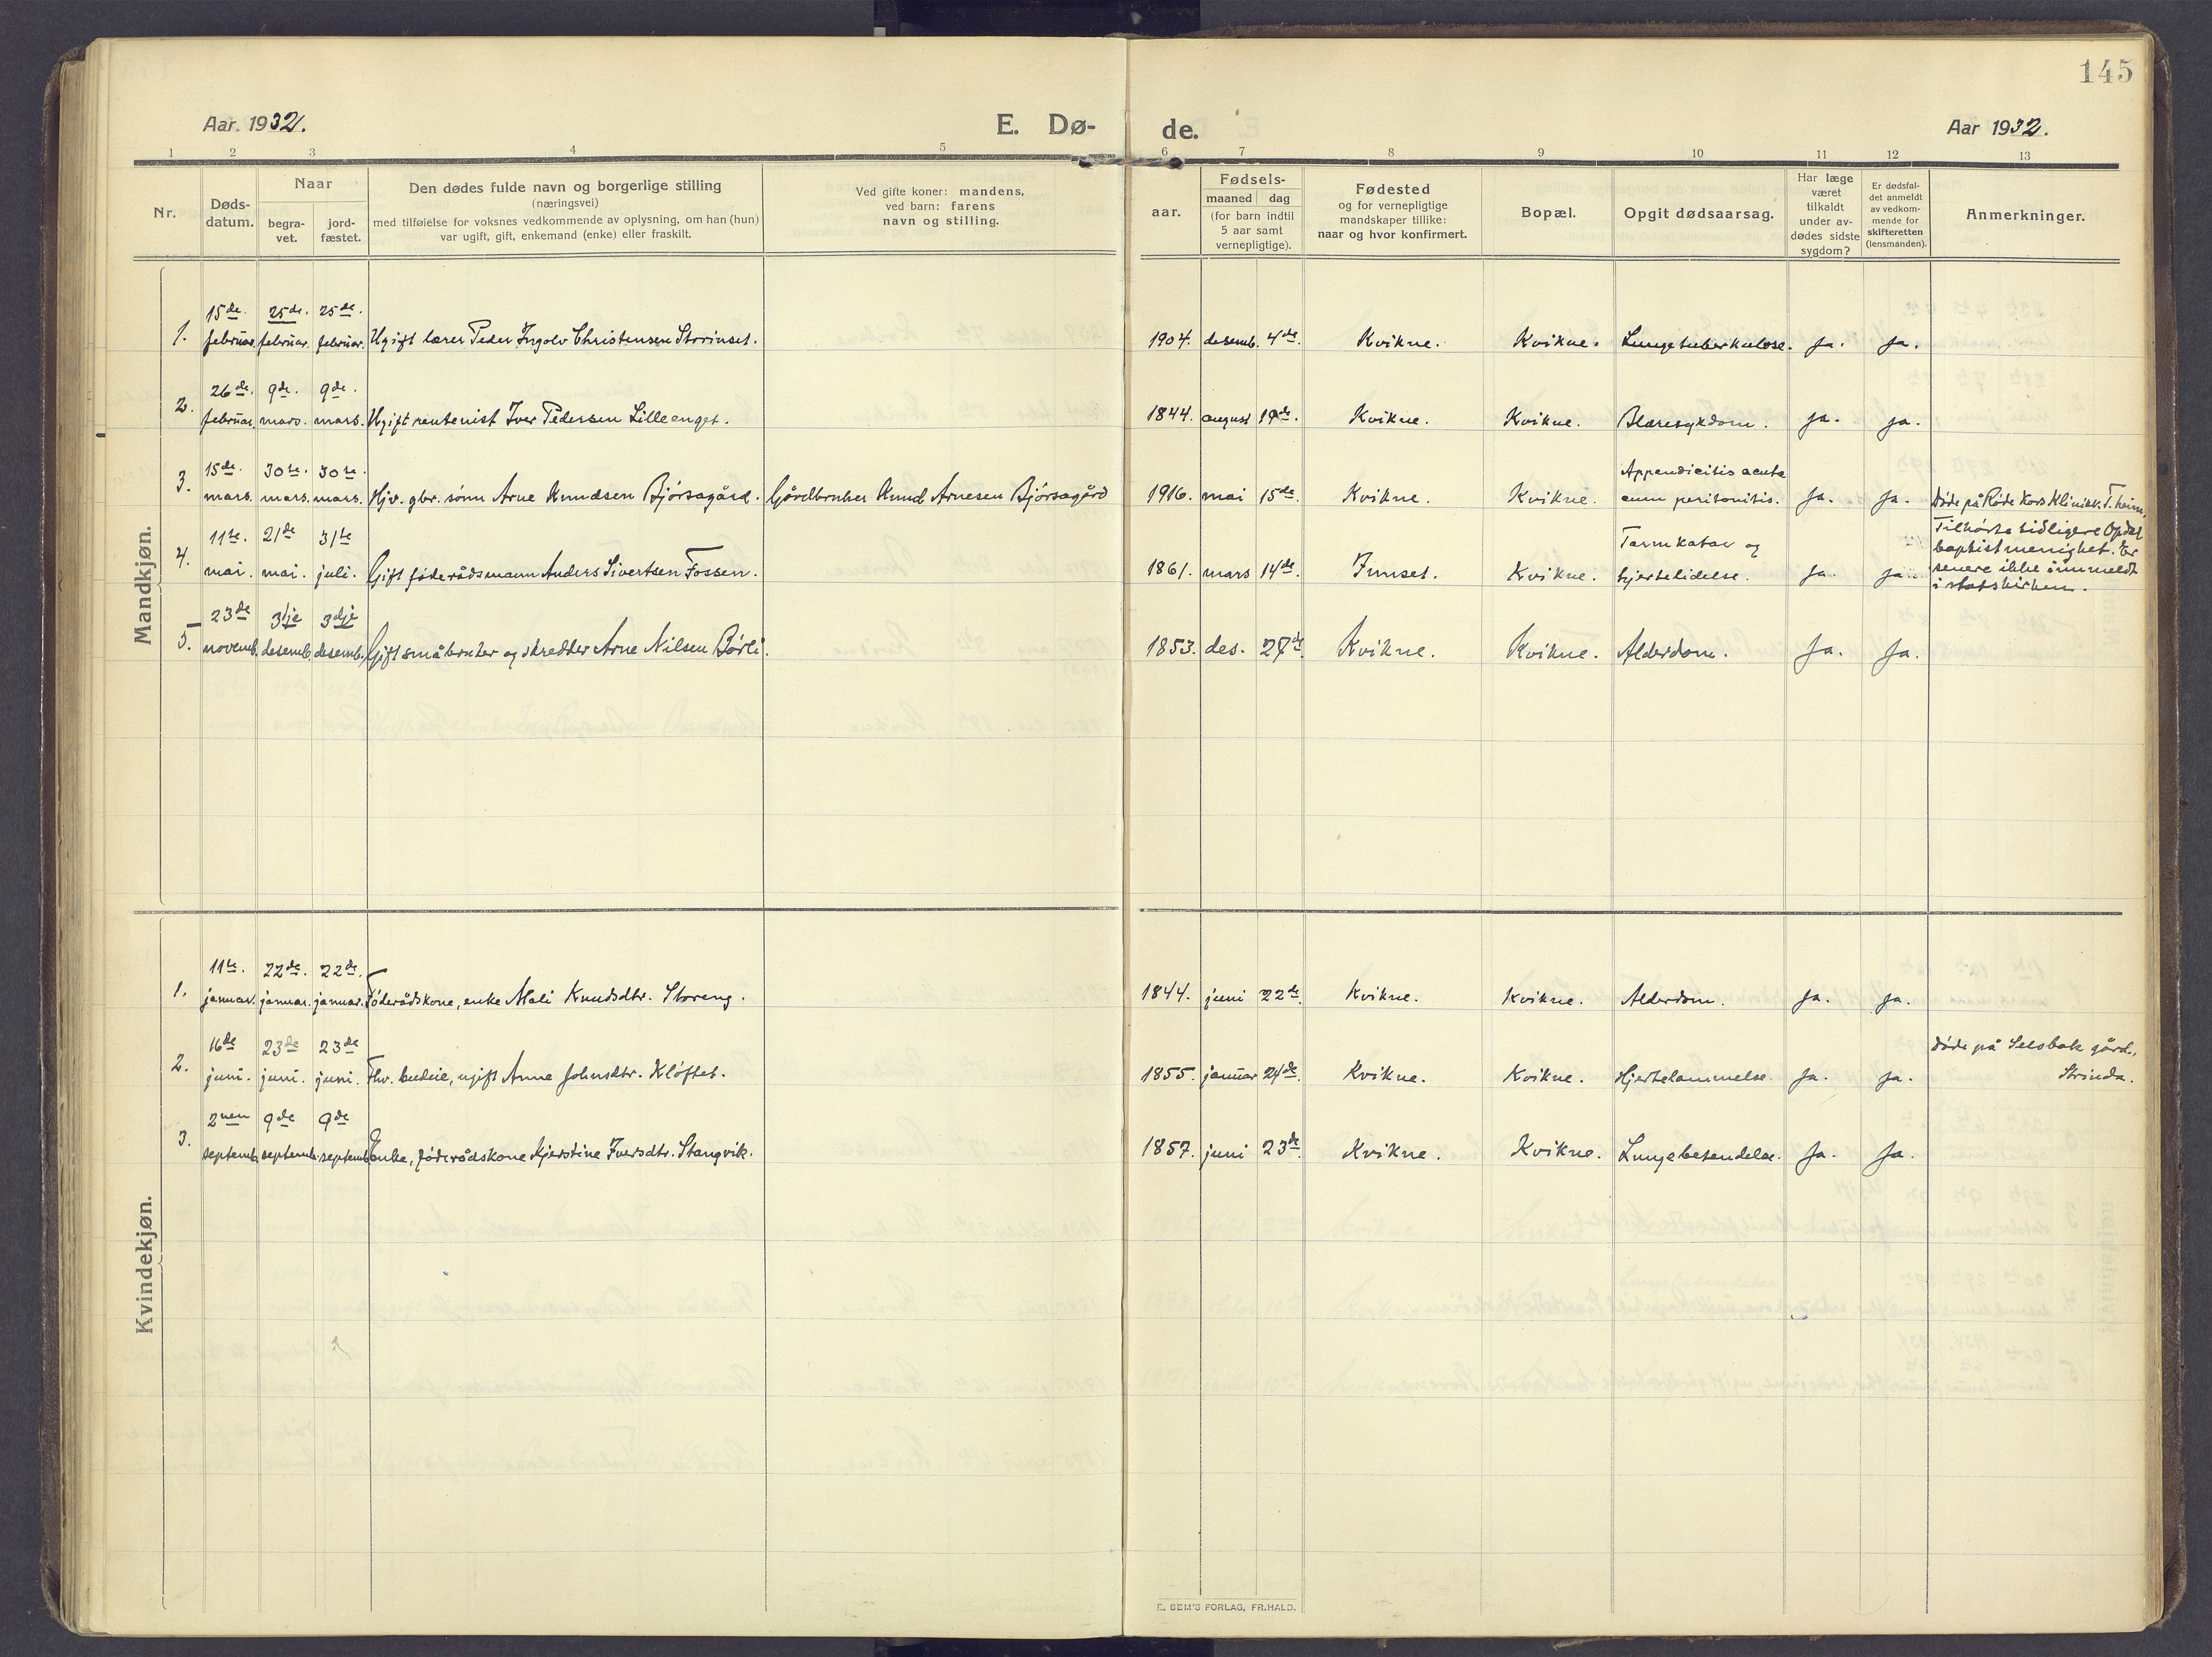 145
Aar. 1932.
E. Dø-
de.
Aar 1932.
1 2 3 4 5 6 7 8 9 10 11 12 13
Nr.
Døds-
datum.
Naar
begra-
vet.
jord-
fæstet.
Den dødes fulde navn og borgerlige stilling
(næringsvei)
med tilføielse for voksnes vedkommende av oplysning, om han (hun)
var ugift, gift, enkemand (enke) eller fraskilt.
Ved gifte koner: mandens,
ved barn: farens
navn og stilling.
aar.
Fødsels-
maaned dag
(for barn indtil
5 aar samt
vernepligtige).
Fødested
og for vernepligtige
mandskaper tillike:
naar og hvor konfirmert.
Bopæl.
Opgit dødsaarsag.
Har læge
været
tilkaldt
under av-
dødes sidste
sygdom?
Er dødsfal-
det anmeldt
av vedkom-
mende for
skifteretten
(lensmanden).
Anmerkninger.
Mandkjøn.
15de. 25de. 25de.
1. februar. februar. februar. Ugift lærer Peder Ingolv Christensen Storinset. 1904. desemb. 4de. Kvikne. Kvikne. Lungetuberkulose. Ja. Ja.
26de. 9de. 9de.
2. februar. mars. mars. Ugift rentenist Iver Pedersen Lilleenget. 1844. august 19de. Kvikne. Kvikne. Blæresykdom. Ja. Ja.
15de. 30te. 30te. Appendicitis acuta
3. mars. mars. mars. Hjv. gbr. sønn Arne Knudsen Bjørsagård. Gårdbruker Knud Arnesen Bjørsagård 1916. mai 15de. Kvikne. Kvikne. cum peritonitis. Ja. Ja. Døde på Røde Kors Klinikk. T.heim.
11te. 21de 31te Tarmkatar og Tilhørte tidligere Opdal
baptistmenighet. Er
4. mai. mai. juli. Gift føderådsmann Anders Sivertsen Fossen. 1861. mars 14de. Innset. Kvikne. hjertelidelse. Ja. Ja. senere ikke innmeldt
i statskirken.
23de 3dje 3dje
5. novemb. desemb. desemb. Gift småbruker og skredder Arne Nilsen Børli. 1853. des. 27de. Kvikne. Kvikne. Alderdom. Ja. Ja.
Kvindekjøn.
11te. 22de. 22de.
1. januar. januar. januar. Føderådskone, enke Mali Knudsdtr. Storeng. 1844. juni 22de. Kvikne. Kvikne. Alderdom. Ja. Ja.
16de 23de 23de Døde på Selsbak gård,
2. juni. juni. juni. Fhv. budeie, ugift Anne Johnsdtr. Kløftet. 1855. januar 24de. Kvikne. Kvikne. Hjertelammelse. Ja. Ja. Strinda.
2nen 9de 9de
3. septemb. septemb. septemb. Enke, føderådskone Kjerstine Iversdtr. Stangvik. 1857. juni 23de. Kvikne. Kvikne. Lungebetendelse. Ja. Ja.
E. SEM'S FORLAG, FR.HALD.